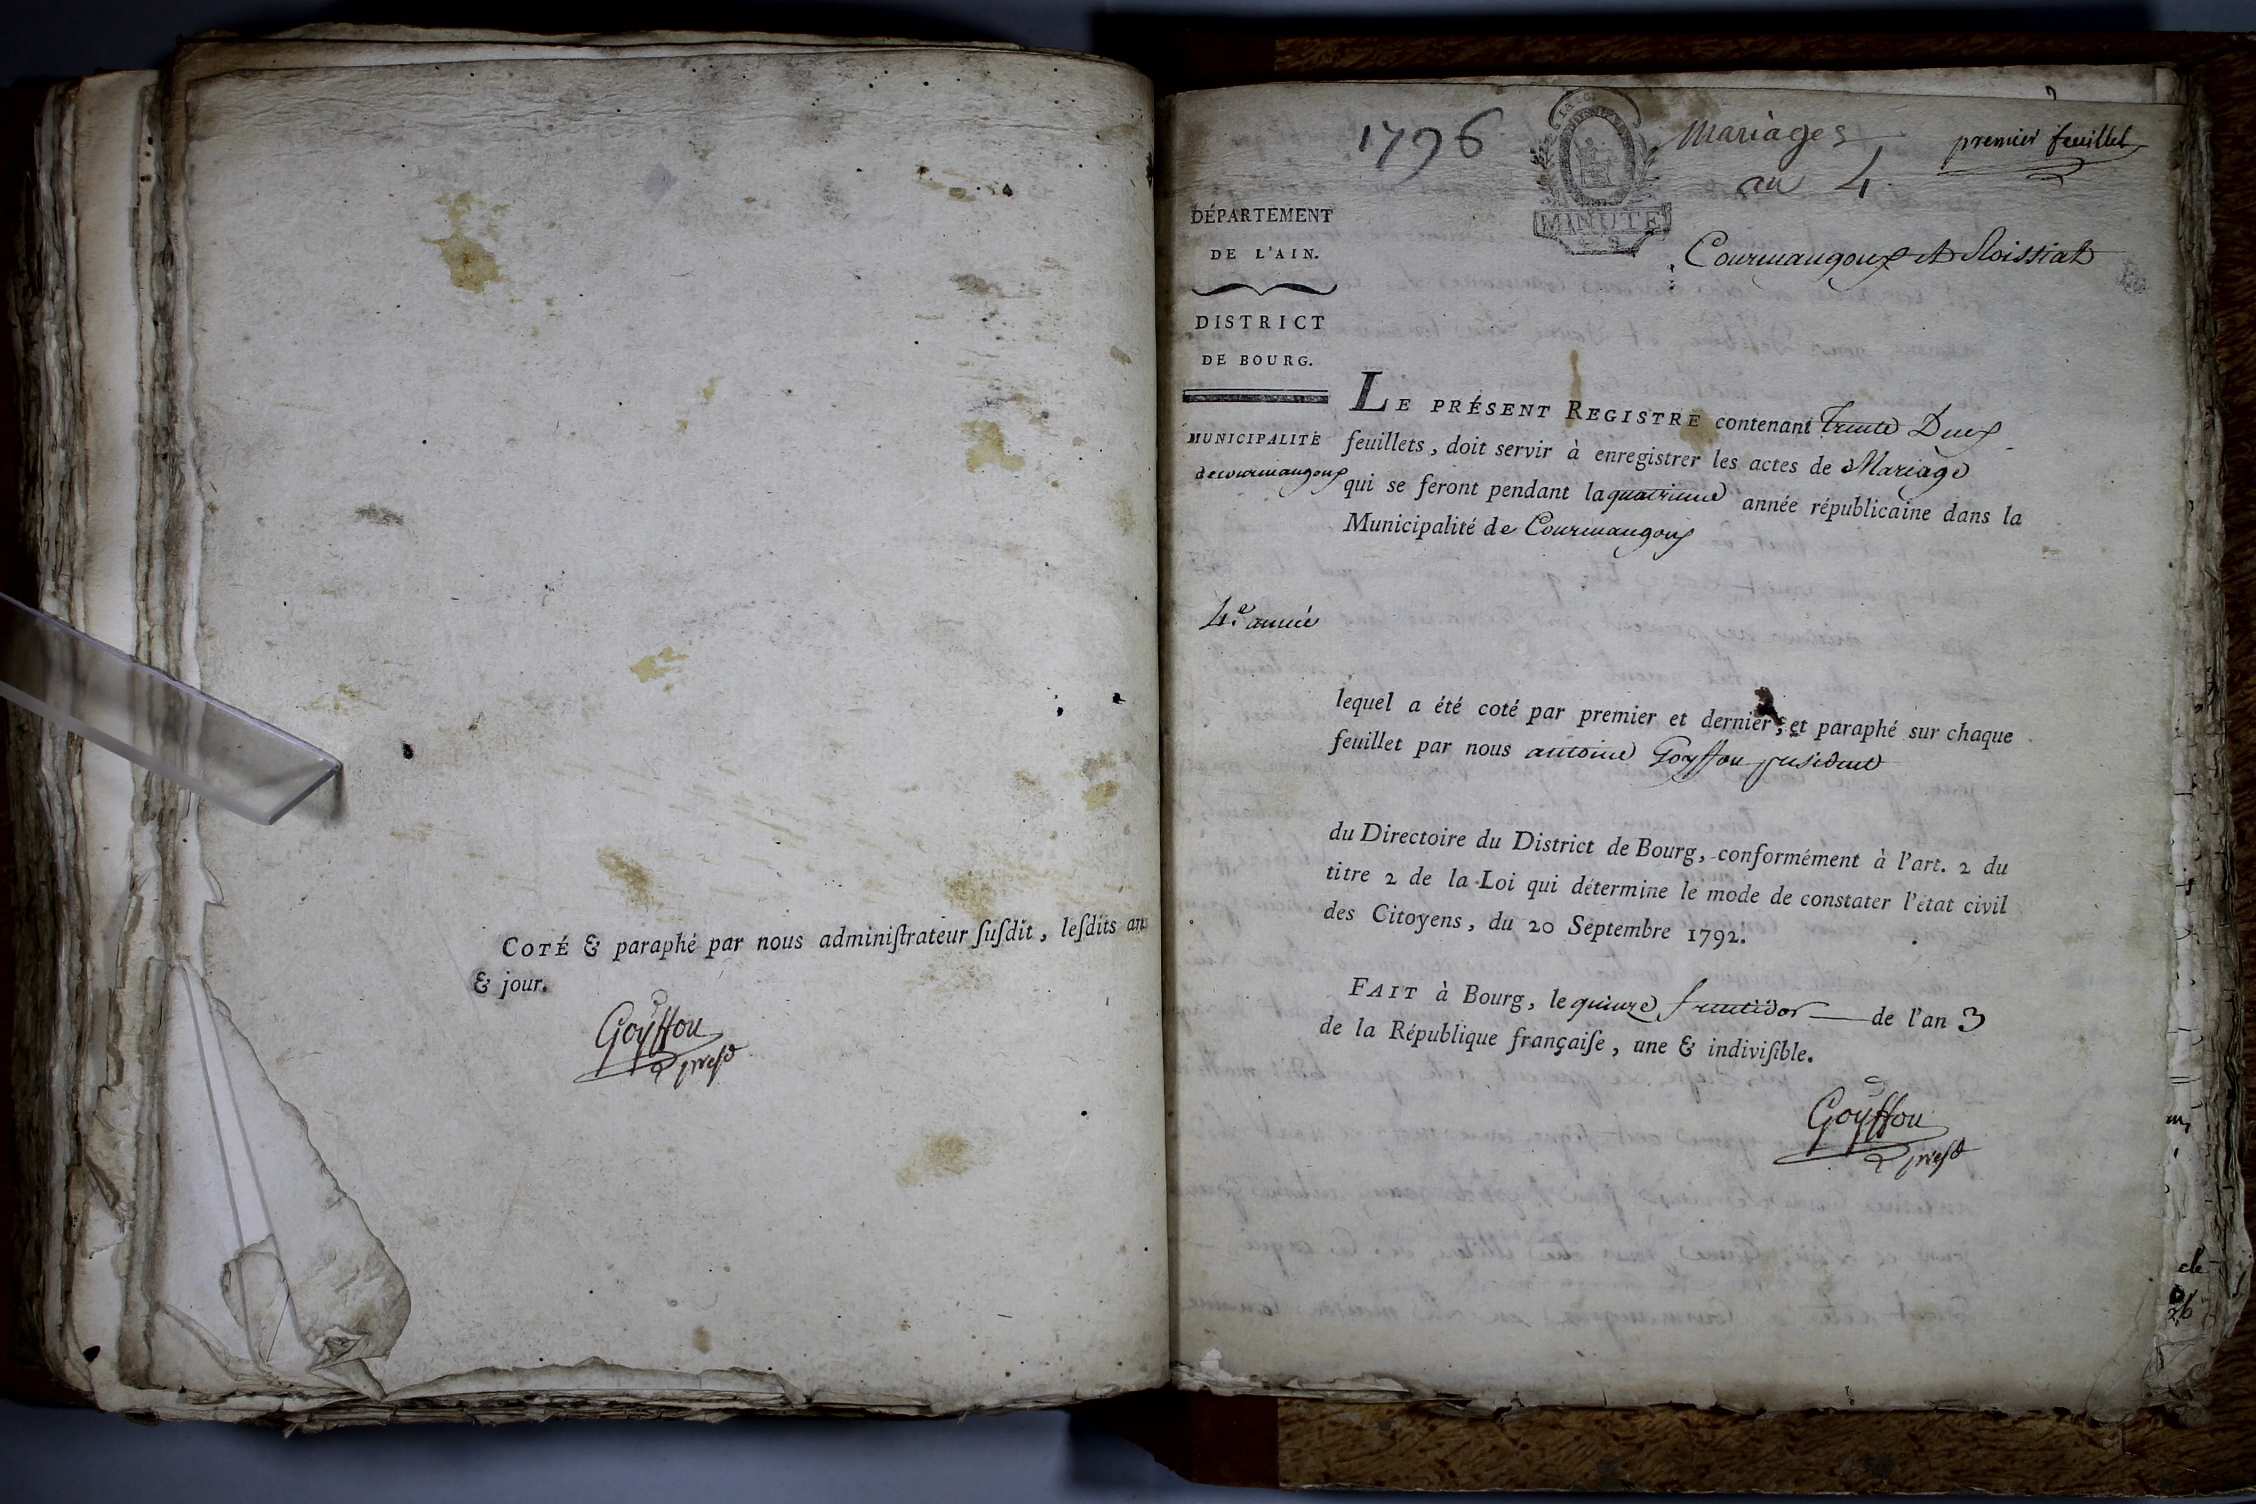 COTÉ & paraphé par nous adminiſtrateur ſuſdit, leſdits an
& jour.
Goyffon
presd
1796
Mariages
an 4
premier feuillet
MINUTE
DÉPARTEMENT
DE L'AIN.
Courmangoux et Roissiat
DISTRICT
DE BOURG.
MUNICIPALITÉ
de courmangoux
LE PRÉSENT REGISTRE contenant trente Deux
feuillets, doit servir à enregistrer les actes de Mariage
qui se feront pendant la quatrieme année républicaine dans la
Municipalité de Courmangoux
4.e année
lequel a été coté par premier et dernier, et paraphé sur chaque
feuillet par nous antoine Goyffon president
du Directoire du District de Bourg, conformément à l'art. 2 du
titre 2 de la Loi qui détermine le mode de constater l'état civil
des Citoyens, du 20 Septembre 1792.
FAIT à Bourg, le quinze fructidor de l'an 3
de la République françaiſe, une & indiviſible.
Goyffon
presd